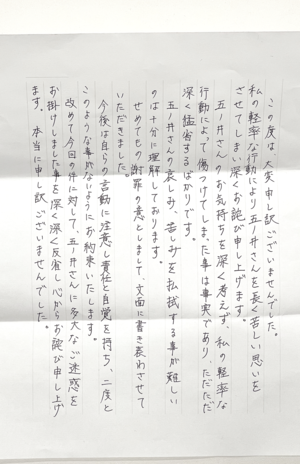 この度は大変申し訳ございませんでした。
私の軽率な行動により五ノ井さんを長く苦しい思いを
させてしまい深くお詫び申し上げます。
五ノ井さんのお気持ちを深く考えず、私の軽率な
行動によって傷つけてしまった事は事実であり、ただただ
深く猛省するばかりです。
五ノ井さんの哀しみ、苦しみを払拭する事が難しい
のは十分に理解しております。
せめてもの謝罪の意としまして、文面に書き表わさせて
いただきました。
今後は自らの言動に注意し責任と自覚を持ち、二度と
このような事がないようにお約束いたします。
改めて今回の件に対して、五ノ井さんに多大なご迷惑を
お掛けしました事を深く深く反省し心からお詫び申し上げ
ます。本当に申し訳ございませんでした。